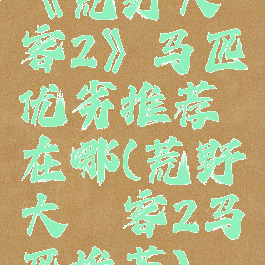 《荒野大
客2》马匹
优劣推荐
在哪(荒野
大 客2马
匹推荐)